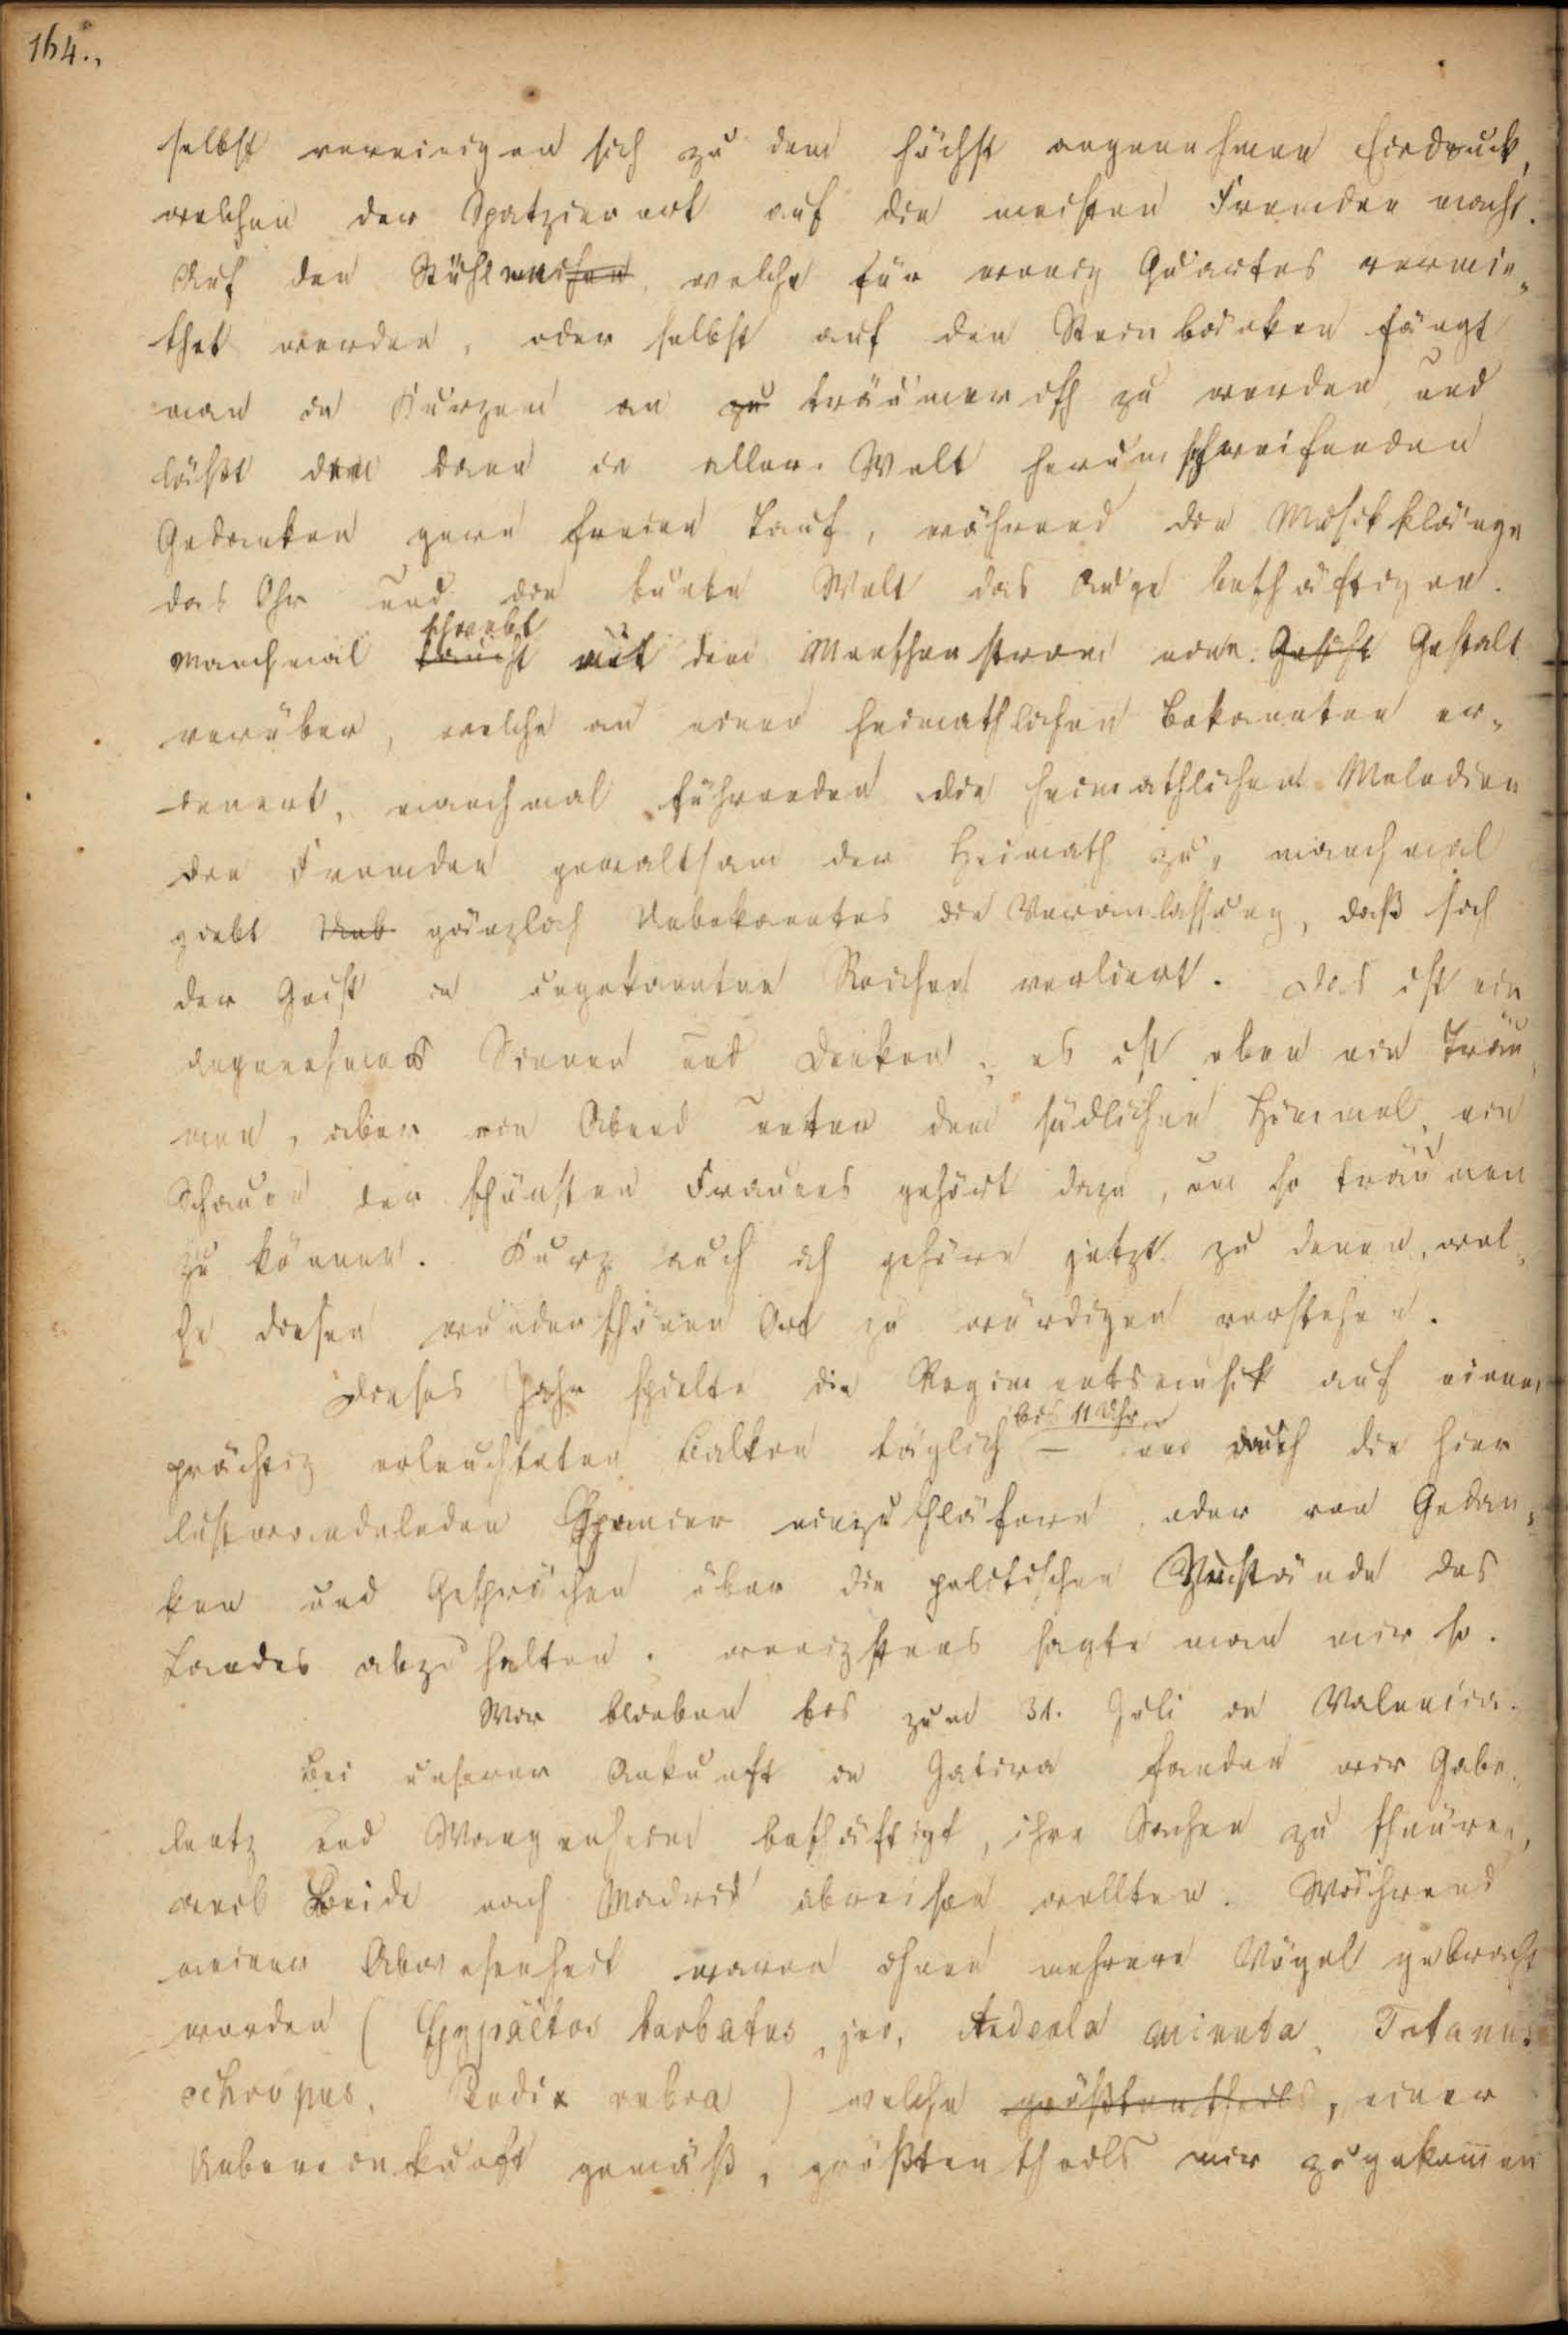 164.,
selbst vereinigen sich zu dem höchst angenehmen Eindruck,
welchen der Spatzierort auf die meisten Fremden macht.
Auf den Stühlen welche für wenig Quartos vermie-
thet werden, oder selbst auf den Steinbänken fängt
man in Kurzem an zu träumerisch zu werden und
läßt den dann in aller Welt herumschweifenden
Gedanken gern freien Lauf, während die Musikklänge
das Ohr und die bunte Welt das Auge beschäftigen.
schwebt
Manchmal taucht mit dem Menschenstrom eine Gesicht Gestalt
vorüber, welche an einen heimathlichen Bekannten er-
innert, manchmal führenden die heimathlichen Melodien
den Fremden gewaltsam der Heimath zu, manchmal
giebt Unb gänzlich Unbekanntes die Veranlassung, daß sich
der Geist in ungekannten Reichen verliert. Das ist ein
angenehmes Sinnen und Denken, es ist eben ein Träu-
men, aber ein Abend unter dem südlichen Himmel, ein
Schauen der schönsten Frauen gehört dazu, um so träumen
zu können. Kurz auch ich gehöre jetzt zu denen, wel-
che diesen wunderschönen Ort zu würdigen verstehen.
Dieses Jahr spielte die Regimentsmusik auf einem
bis 11 Uhr
prächtig erleuchteten Balkon täglich — um auch die hier
lustwandelnden Spanier einzuschläfern oder von Gedan-
ken und Gesprächen über die politischen Zustände des
Landes abzuhalten. wenigstens sagte man mir so.
Wir blieben bis zum 31. Juli in Valencia.
Bei unserer Ankunft in Jativa fanden wir Gabe-
lentz und Wangenheim beschäftigt, ihre Sachen zu schnüren,
weil Beide nach Madrid abreisen wollten. Während
meiner Abwesenheit waren ihnen mehrere Vögel gebracht
worden (Gypaëtos barbatus, jov, Ardeola minuta, Totanus
ochropus, Perdix rubra) welche größtentheils, einer
Uebereinkunft gemäß, größtentheils mir zugekommen